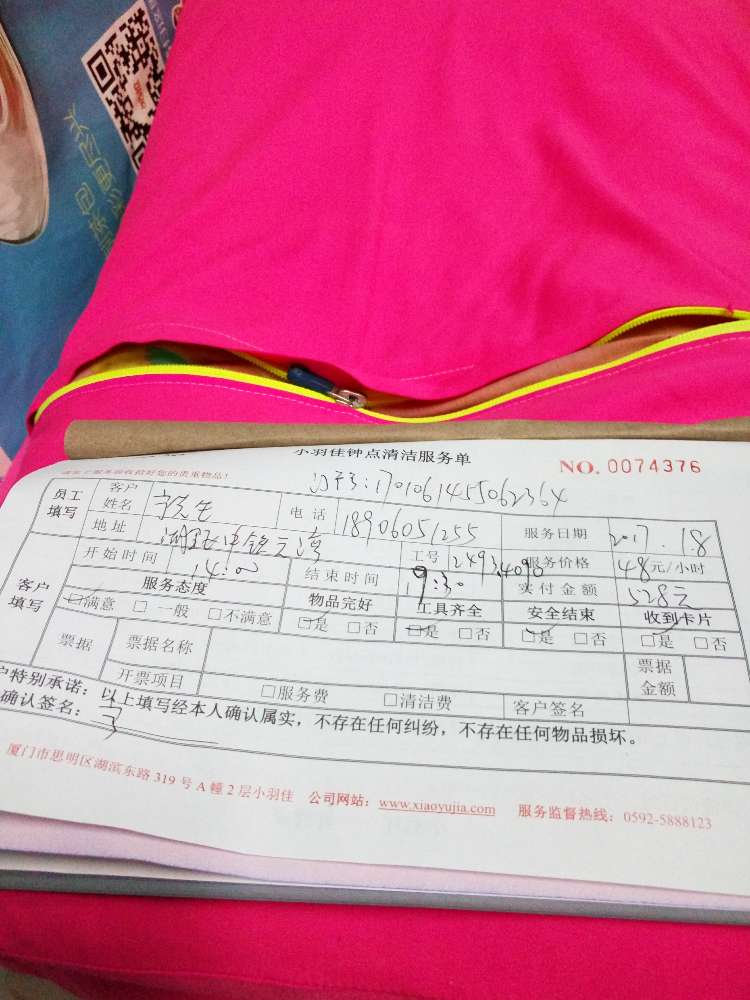 小羽佳钟点清洁服务单
NO. 0074376
员工填写 客户姓名 电话 18906051255 服务日期 2017.1.8
地址 工号 2493.4090 服务价格 48元/小时
客户填写 开始时间 14:00 结束时间 19:30 实付金额 528元
服务态度 物品完好 工具齐全 安全结束 收到卡片
□满意 □一般 □不满意 □是 □否 □是 □否 □是 □否 □是 □否
票据 票据名称 票据金额
开票项目 □服务费 □清洁费 客户签名
户特别承诺：以上填写经本人确认属实，不存在任何纠纷，不存在任何物品损坏。
确认签名：
厦门市思明区湖滨东路 319 号 A 幢 2 层小羽佳 公司网站：www.xiaoyujia.com 服务监督热线：0592-5888123